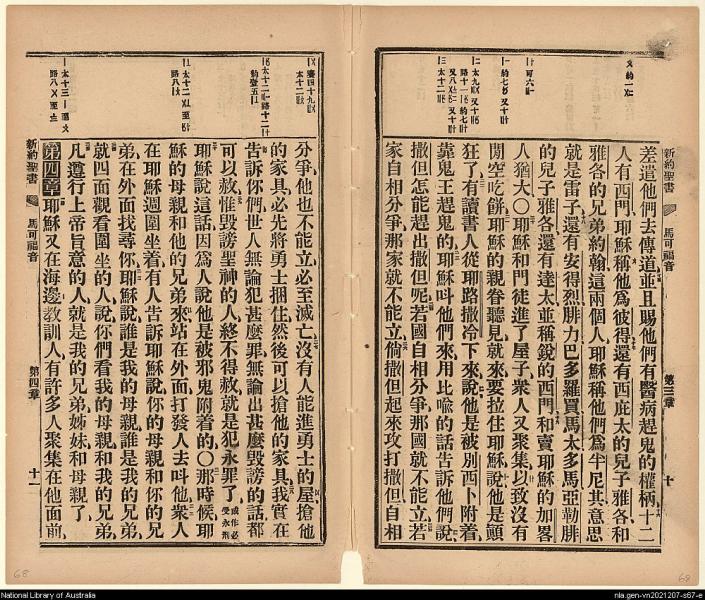 新約聖書
馬可福音
第三章
十
差遣他們去傳道並且賜他們有醫病趕鬼的權柄十二
人有西門耶穌稱他爲彼得還有西庇太的兒子雅各和
雅各的兄弟約翰這兩個人耶穌稱他們爲半尼其意思
就是雷子還有安得烈腓力巴多羅買馬太多馬亞勒腓
的兒子雅各還有達太並稱銳的西門和賣耶穌的加畧
人猶大〇耶穌和門徒進了屋子衆人又聚集以致沒有
閒空吃餅耶穌的親眷聽見就來要拉住耶穌說他是顚
狂了有讀書人從耶路撒冷下來說他是被別西卜附着
靠鬼王趕鬼的耶穌叫他們來用比喩的話告訴他們說
撒但怎能趕出撒但呢若國自相分爭那國就不能立若
家自相分爭那家就不能立倘撒但起來攻打撒但自相
分爭他也不能立必至滅亡沒有人能進勇士的屋搶他
的家具必先將勇士捆住然後可以搶他的家具我實在
告訴你們世人無論犯甚麼罪無論出甚麼毀謗的話都
可以赦惟毀謗聖神的人終不得赦就是犯永罪了或作必受永刑
耶穌說這話因爲人說他是被邪鬼附着的〇那時候耶
穌的母親和他的兄弟來站在外面打發人去叫他衆人
在耶穌週圍坐着有人告訴耶穌說你的母親和你的兄
弟在外面找尋你耶穌說誰是我的母親誰是我的兄弟
就四面觀看圍坐的人說你們看我的母親和我的兄弟
凡遵行上帝旨意的人就是我的兄弟姊妹和母親了
第四章耶穌又在海邊教訓人有許多人聚集在他面前
新約聖書
馬可福音
第四章
十一
68
68
National Library of Australia
nla.gen-vn2021207-s67-e